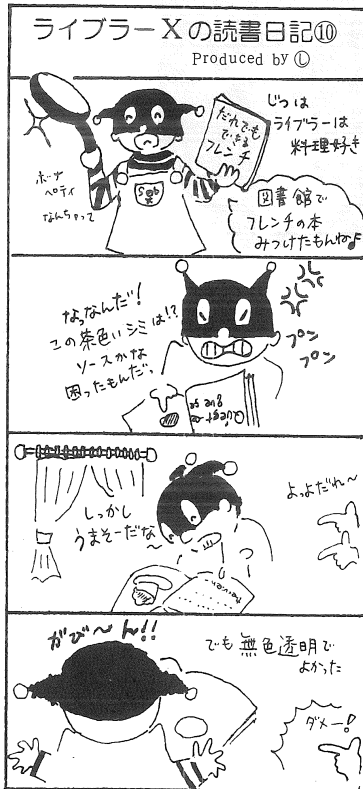 ライブラーXの読書日記⑩
Produced by Ⓛ
じつは
ライブラーは
料理好き
だれでも
できる
フレンチ
ボナ
ペティ
なんちゃって
図書館で
フレンチの本
みつけたもんね♪
なっなんだ!
この茶色いシミは!?
ソースかな
困ったもんだ、
プン
プン
しっかし
うまそーだな～
よっよだれ～
がび～ん!!
でも無色透明で
よかった
ダメー!